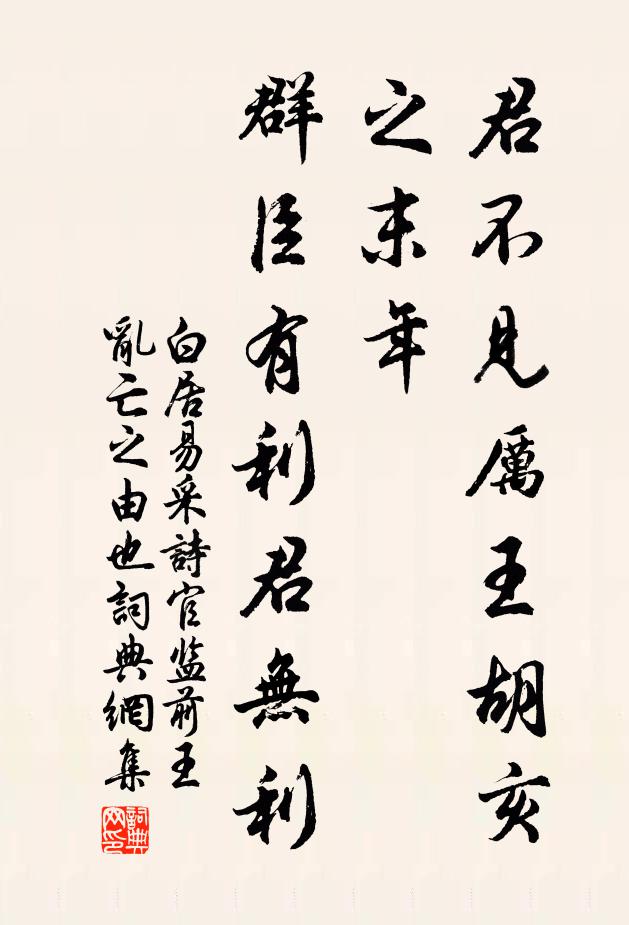 君不見厲王胡亥
之末年
群臣有利君無利
白居易采詩官監前王
亂亡之由也詞典網集
詞典
网印